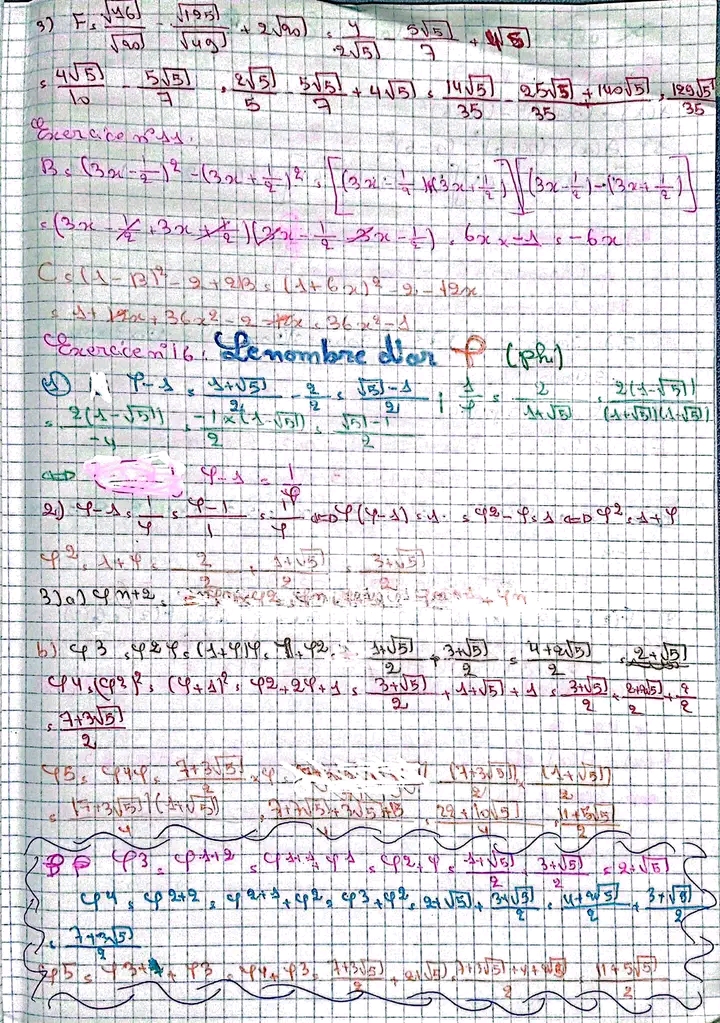 3) F = √16/√20 - √125/√49 + 2√20 = 4/2√5 - 5√5/7 + 4√5
= 4√5/10 - 5√5/7 = 2√5/5 - 5√5/7 + 4√5 = 14√5/35 - 25√5/35 + 140√5 = 129√5/35
Exercice n°11
B = (3x - 1/2)² - (3x + 1/2)² = [(3x - 1/2)+(3x + 1/2)][(3x - 1/2) - (3x + 1/2)]
= (3x - 1/2 + 3x + 1/2)(3x - 1/2 - 3x - 1/2) = 6x × -1 = -6x
C = (1 - B)² - 2 + 2B = (1 + 6x)² - 2 - 12x
= 1 + 12x + 36x² - 2 - 12x = 36x² - 1
Exercice n°16 : Le nombre d'or φ (phi)
① φ - 1 = 1+√5/2 - 2/2 = √5-1/2 ; 1/φ = 2/1+√5 = 2(1-√5)/(1+√5)(1-√5)
= 2(1-√5)/-4 = -1×(1-√5)/2 = √5-1/2
⇔ φ - 1 = 1/φ
2) φ - 1 = 1/φ = φ-1/1 = 1/φ ⇔ φ(φ-1) = 1 = φ² - φ = 1 ⇔ φ² = 1 + φ
φ² = 1 + φ = 2/2 + 1+√5/2 = 3+√5/2
3) a) φn+2 =
b) φ3 = φ2φ = (1+φ)φ = φ+φ2 = 1+√5/2 + 3+√5/2 = 4+2√5/2 = 2+√5
φ4 = (φ2)² = (φ+1)² = φ2+2φ+1 = 3+√5/2 + 1+√5 + 1 = 3+√5/2 + 2+2√5/2 + 2/2
= 7+3√5/2
φ5 = φ4φ = 7+3√5/2 × φ = (7+3√5)/2 × (1+√5)/2
= (7+3√5)(1+√5)/4 = 7+7√5+3√5+15/4 = 22+10√5/4 = 11+5√5/2
φ3 = φ1+2 = φ1+1 + φ1 = φ2+φ = 1+√5/2 + 3+√5/2 = 2+√5
φ4 = φ2+2 = φ2+1 + φ2 = φ3+φ2 = 2+√5 + 3+√5/2 = 4+2√5/2 + 3+√5/2
= 7+3√5/2
φ5 = φ3+1 + φ3 = φ4+φ3 = 7+3√5/2 + 2+√5 = 7+3√5+4+2√5/2 = 11+5√5/2